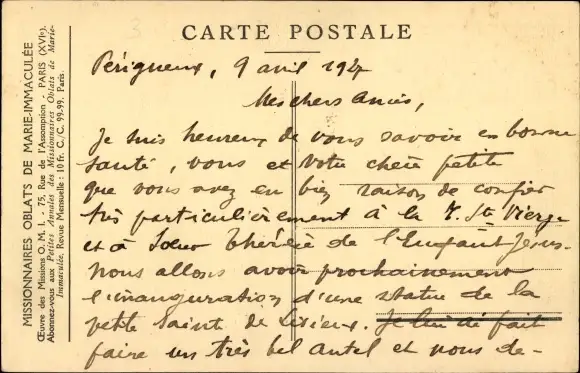 CARTE POSTALE
MISSIONNAIRES OBLATS DE MARIE-IMMACULÉE
Œuvre des Missions O. M. I. - 75, Rue de l'Assomption - PARIS (XVIe).
Abonnez-vous aux Petites Annales des Missionnaires Oblats de Marie-
Immaculée. Revue Mensuelle : 10 fr. C./C. 99-99. Paris.
Périgueux, 9 avril 192
Mes chers Amis,
Je suis heureux de vous savoir en bonne
santé, vous et votre chère petite
que vous avez eu bien raison de confier
très particulièrement à la T. Ste Vierge
et à Sœur Thérèse de l'Enfant Jésus.
Nous allons avoir prochainement
l'inauguration d'une statue de la
petite Sainte de Lisieux. Je lui ai fait
faire un très bel autel et nous de-